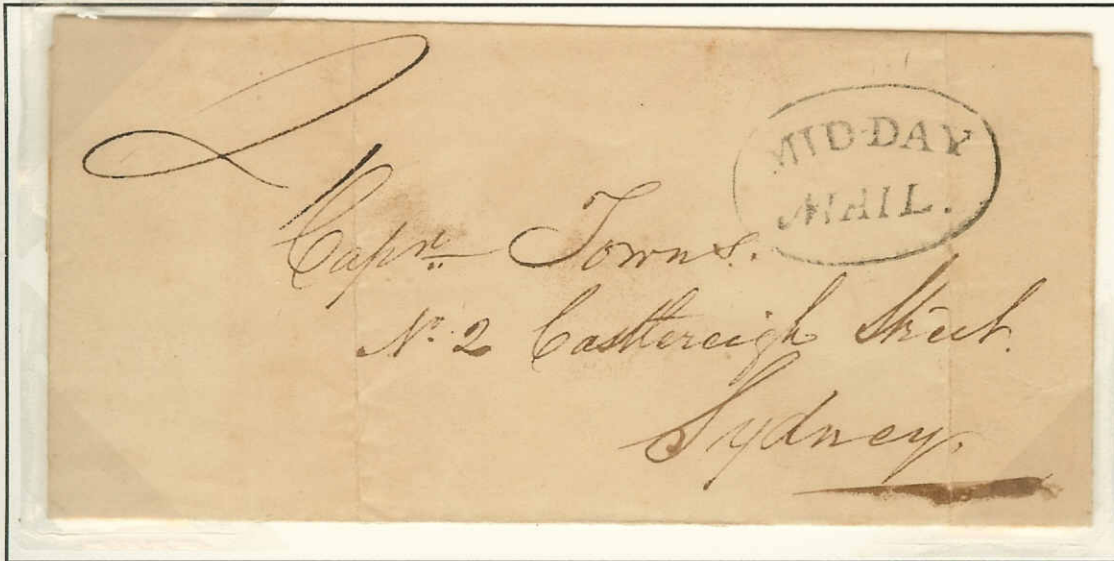 2
MID-DAY
MAIL.
Capn Towns.
No. 2 Castlereigh Street.
Sydney.